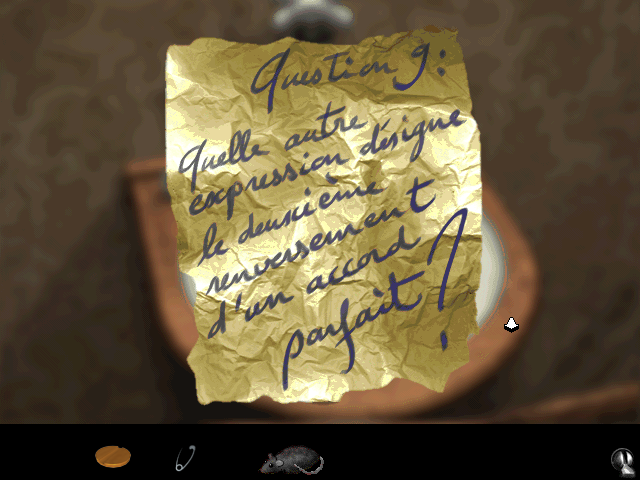 Question 9:
Quelle autre
expression désigne
le deuxième
renversement
d'un accord
parfait ?